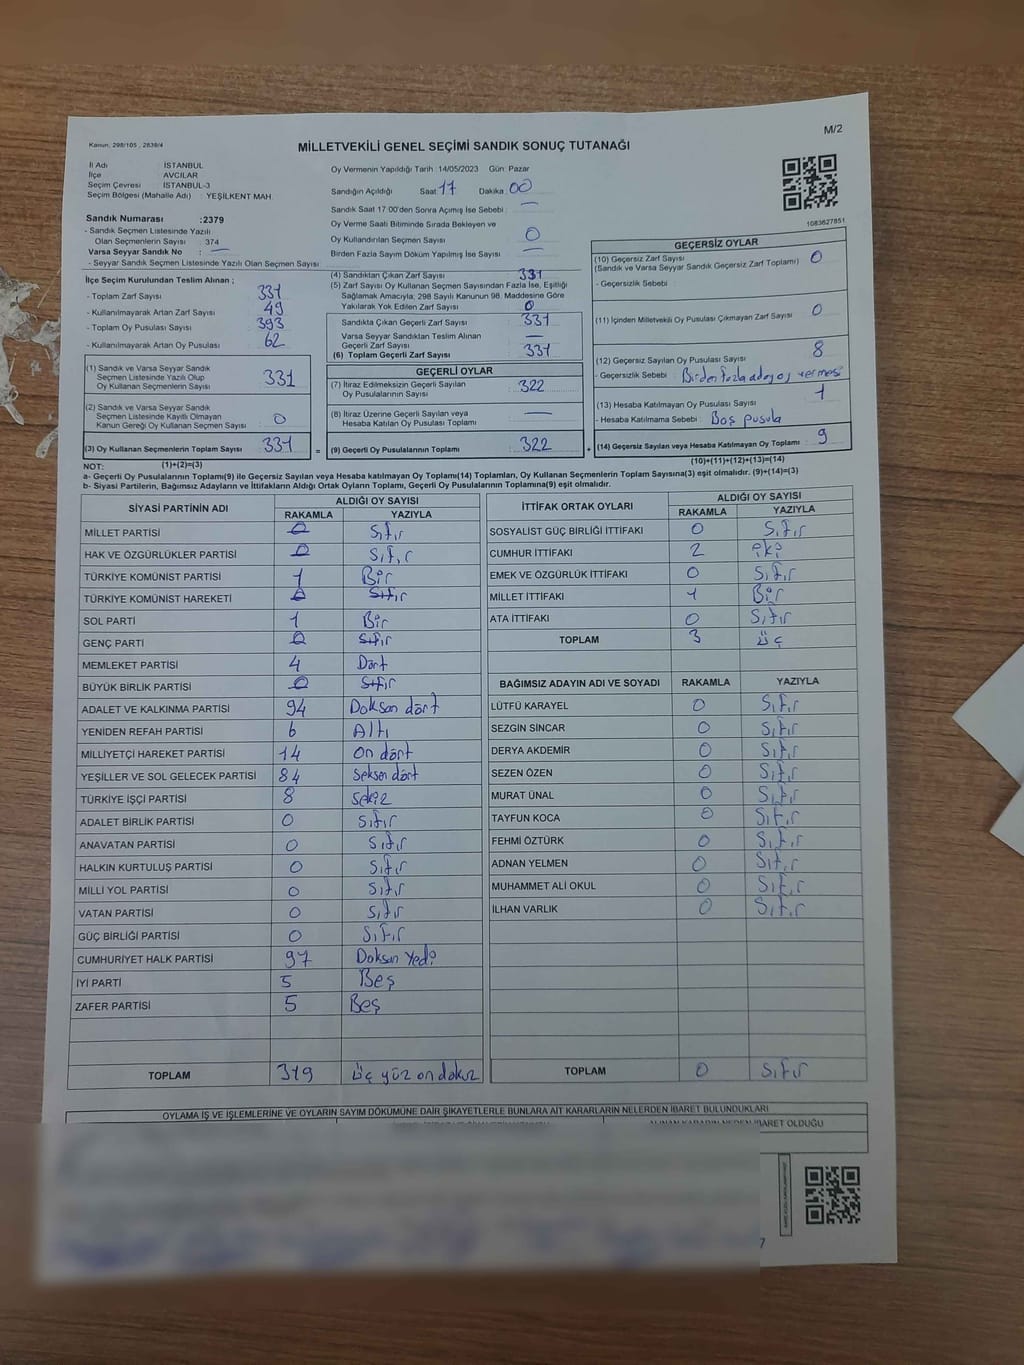 M/2
Kanun, 298/105 , 2839/4
MİLLETVEKİLİ GENEL SEÇİMİ SANDIK SONUÇ TUTANAĞI
İl Adı : İSTANBUL
İlçe : AVCILAR
Seçim Çevresi : İSTANBUL-3
Seçim Bölgesi (Mahalle Adı) : YEŞİLKENT MAH.
Sandık Numarası :2379
- Sandık Seçmen Listesinde Yazılı
Olan Seçmenlerin Sayısı : 374
Varsa Seyyar Sandık No : —
- Seyyar Sandık Seçmen Listesinde Yazılı Olan Seçmen Sayısı :
Oy Vermenin Yapıldığı Tarih :14/05/2023 Gün: Pazar
Sandığın Açıldığı Saat 17 Dakika 00
Sandık Saat 17:00'den Sonra Açımış İse Sebebi : —
Oy Verme Saati Bitiminde Sırada Bekleyen ve
Oy Kullandırılan Seçmen Sayısı 0
Birden Fazla Sayım Döküm Yapılmış İse Sayısı —
1083627851
İlçe Seçim Kurulundan Teslim Alınan ;
- Toplam Zarf Sayısı : 331
- Kullanılmayarak Artan Zarf Sayısı : 49
- Toplam Oy Pusulası Sayısı : 393
- Kullanılmayarak Artan Oy Pusulası : 62
(1) Sandık ve Varsa Seyyar Sandık
Seçmen Listesinde Yazılı Olup
Oy Kullanan Seçmenlerin Sayısı : 331
(2) Sandık ve Varsa Seyyar Sandık
Seçmen Listesinde Kayıtlı Olmayan
Kanun Gereği Oy Kullanan Seçmen Sayısı : 0
(3) Oy Kullanan Seçmenlerin Toplam Sayısı : 331
(1)+(2)=(3)
(4) Sandıktan Çıkan Zarf Sayısı : 331
(5) Zarf Sayısı Oy Kullanan Seçmen Sayısından Fazla İse, Eşitliği
Sağlamak Amacıyla; 298 Sayılı Kanunun 98. Maddesine Göre
Yakılarak Yok Edilen Zarf Sayısı : 0
Sandıkta Çıkan Geçerli Zarf Sayısı : 331
Varsa Seyyar Sandıktan Teslim Alınan
Geçerli Zarf Sayısı : —
(6) Toplam Geçerli Zarf Sayısı : 331
GEÇERLİ OYLAR
(7) İtiraz Edilmeksizin Geçerli Sayılan
Oy Pusulasının Sayısı : 322
(8) İtiraz Üzerine Geçerli Sayılan veya
Hesaba Katılan Oy Pusulası Toplamı : —
= (9) Geçerli Oy Pusulalarının Toplamı : 322 +
GEÇERSİZ OYLAR
(10) Geçersiz Zarf Sayısı
(Sandık ve Varsa Seyyar Sandık Geçersiz Zarf Toplamı) : 0
- Geçersizlik Sebebi :
(11) İçinden Milletvekili Oy Pusulası Çıkmayan Zarf Sayısı : 0
(12) Geçersiz Sayılan Oy Pusulası Sayısı : 8
- Geçersizlik Sebebi : Birden fazla aday oy vermesi
(13) Hesaba Katılmayan Oy Pusulası Sayısı : 1
- Hesaba Katılmama Sebebi : Boş pusula
(14) Geçersiz Sayılan veya Hesaba Katılmayan Oy Toplamı : 9
(10)+(11)+(12)+(13)=(14)
NOT:
a- Geçerli Oy Pusulalarının Toplamı(9) ile Geçersiz Sayılan veya Hesaba katılmayan Oy Toplamı(14) Toplamları, Oy Kullanan Seçmenlerin Toplam Sayısına(3) eşit olmalıdır. (9)+(14)=(3)
b- Siyasi Partilerin, Bağımsız Adayların ve İttifakların Aldığı Ortak Oyların Toplamı, Geçerli Oy Pusulalarının Toplamına(9) eşit olmalıdır.
SİYASİ PARTİNİN ADI ALDIĞI OY SAYISI
RAKAMLA YAZIYLA
MİLLET PARTİSİ 0 Sıfır
HAK VE ÖZGÜRLÜKLER PARTİSİ 0 Sıfır
TÜRKİYE KOMÜNİST PARTİSİ 1 Bir
TÜRKİYE KOMÜNİST HAREKETİ 0 Sıfır
SOL PARTİ 1 Bir
GENÇ PARTİ 0 Sıfır
MEMLEKET PARTİSİ 4 Dört
BÜYÜK BİRLİK PARTİSİ 0 Sıfır
ADALET VE KALKINMA PARTİSİ 94 Doksan dört
YENİDEN REFAH PARTİSİ 6 Altı
MİLLİYETÇİ HAREKET PARTİSİ 14 On dört
YEŞİLLER VE SOL GELECEK PARTİSİ 84 Seksen dört
TÜRKİYE İŞÇİ PARTİSİ 8 Sekiz
ADALET BİRLİK PARTİSİ 0 Sıfır
ANAVATAN PARTİSİ 0 Sıfır
HALKIN KURTULUŞ PARTİSİ 0 Sıfır
MİLLİ YOL PARTİSİ 0 Sıfır
VATAN PARTİSİ 0 Sıfır
GÜÇ BİRLİĞİ PARTİSİ 0 Sıfır
CUMHURİYET HALK PARTİSİ 97 Doksan Yedi
İYİ PARTİ 5 Beş
ZAFER PARTİSİ 5 Beş
TOPLAM 319 üç yüz on dokuz
İTTİFAK ORTAK OYLARI ALDIĞI OY SAYISI
RAKAMLA YAZIYLA
SOSYALİST GÜÇ BİRLİĞİ İTTİFAKI 0 Sıfır
CUMHUR İTTİFAKI 2 iki
EMEK VE ÖZGÜRLÜK İTTİFAKI 0 Sıfır
MİLLET İTTİFAKI 1 Bir
ATA İTTİFAKI 0 Sıfır
TOPLAM 3 üç
BAĞIMSIZ ADAYIN ADI VE SOYADI RAKAMLA YAZIYLA
LÜTFÜ KARAYEL 0 Sıfır
SEZGİN SİNCAR 0 Sıfır
DERYA AKDEMİR 0 Sıfır
SEZEN ÖZEN 0 Sıfır
MURAT ÜNAL 0 Sıfır
TAYFUN KOCA 0 Sıfır
FEHMİ ÖZTÜRK 0 Sıfır
ADNAN YELMEN 0 Sıfır
MUHAMMET ALİ OKUL 0 Sıfır
İLHAN VARLIK 0 Sıfır
TOPLAM 0 Sıfır
OYLAMA İŞ VE İŞLEMLERİNE VE OYLARIN SAYIM DÖKÜMÜNE DAİR ŞİKAYETLERLE BUNLARA AİT KARARLARIN NELERDEN İBARET BULUNDUKLARI
ALINAN KARARIN NEDEN İBARET OLDUĞU
7